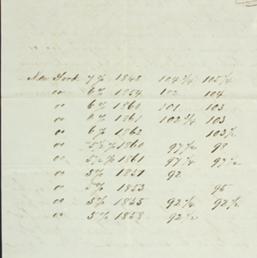 New York 7 % 1848 104 3/4 105 1/2
" 6 % 1854 102 104
" 6 % 1860 101 103
" 6 % 1861 102 3/4 103
" 6 % 1862 103 1/2
" 5 1/2 % 1860 97 1/2 98
" 5 1/2 % 1861 97 1/2 97 1/2
" 5 % 1851 92
" 5 % 1853 95
" 5 % 1855 92 1/2 92 1/2
" 5 % 1858 92 1/2